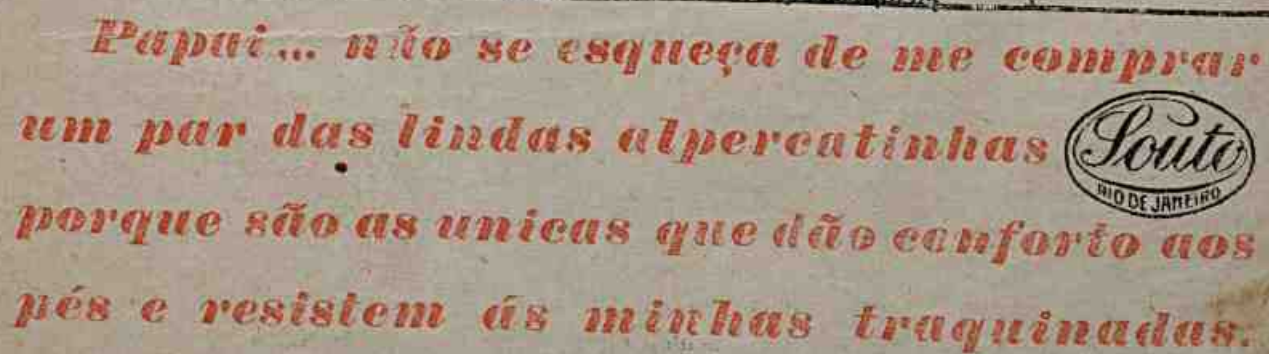 Papai... não se esqueça de me comprar
um par das lindas alpercatinhas Souto
RIO DE JANEIRO
porque são as unicas que dão conforto aos
pés e resistem ás minhas traquinadas.